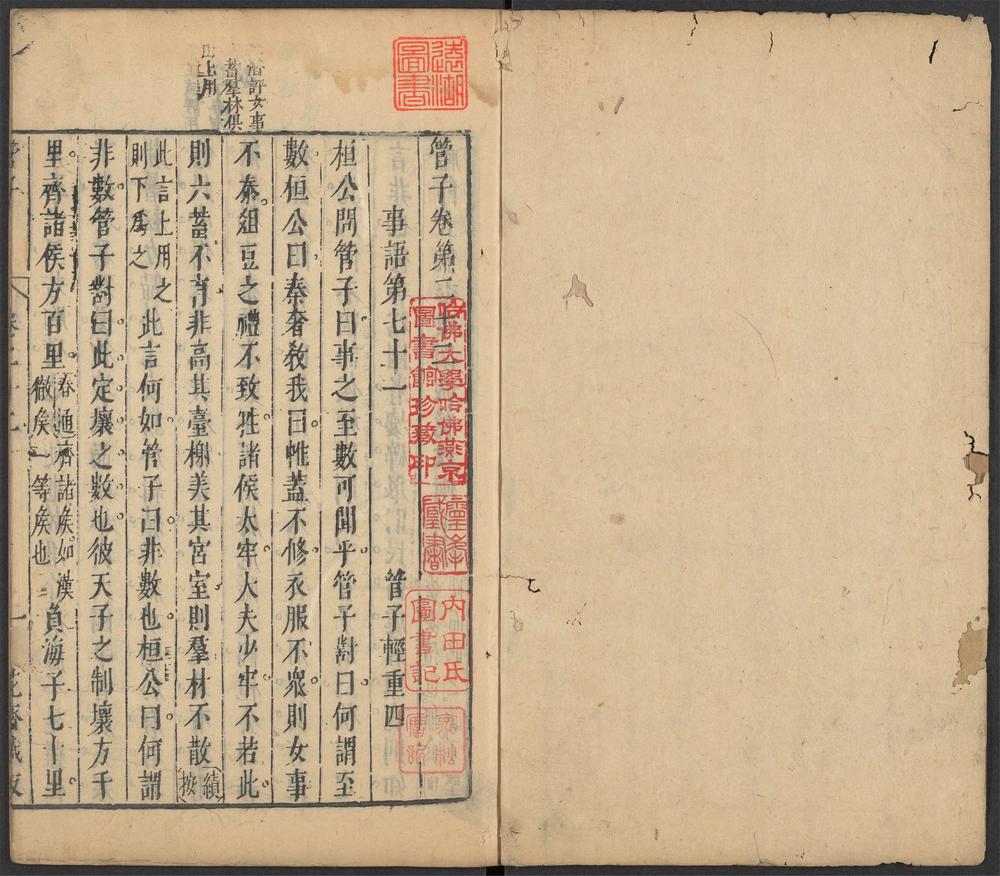 管子卷第二十三
事語第七十一 管子輕重四
桓公問管子曰事之至數可聞乎管子對曰何謂至
數桓公曰秦奢敎我曰帷蓋不修衣服不衆則女事
不泰俎豆之禮不致牲諸侯太牢大夫少牢不若此
則六畜不育非高其臺榭美其宮室則羣材不散
續按
此言上用之
則下爲之
此言何如管子曰非數也桓公曰何謂
非數管子對曰此定壤之數也彼天子之制壤方千
里齊諸侯方百里
春通齊諸矦如漢
徹矦一等矦也
負海子七十里
評女事
蓄羣林俱
上用
遠湖
圖書
哈佛大學哈佛燕京
圖書館珍藏印
內田氏
圖書記
花齋藏板